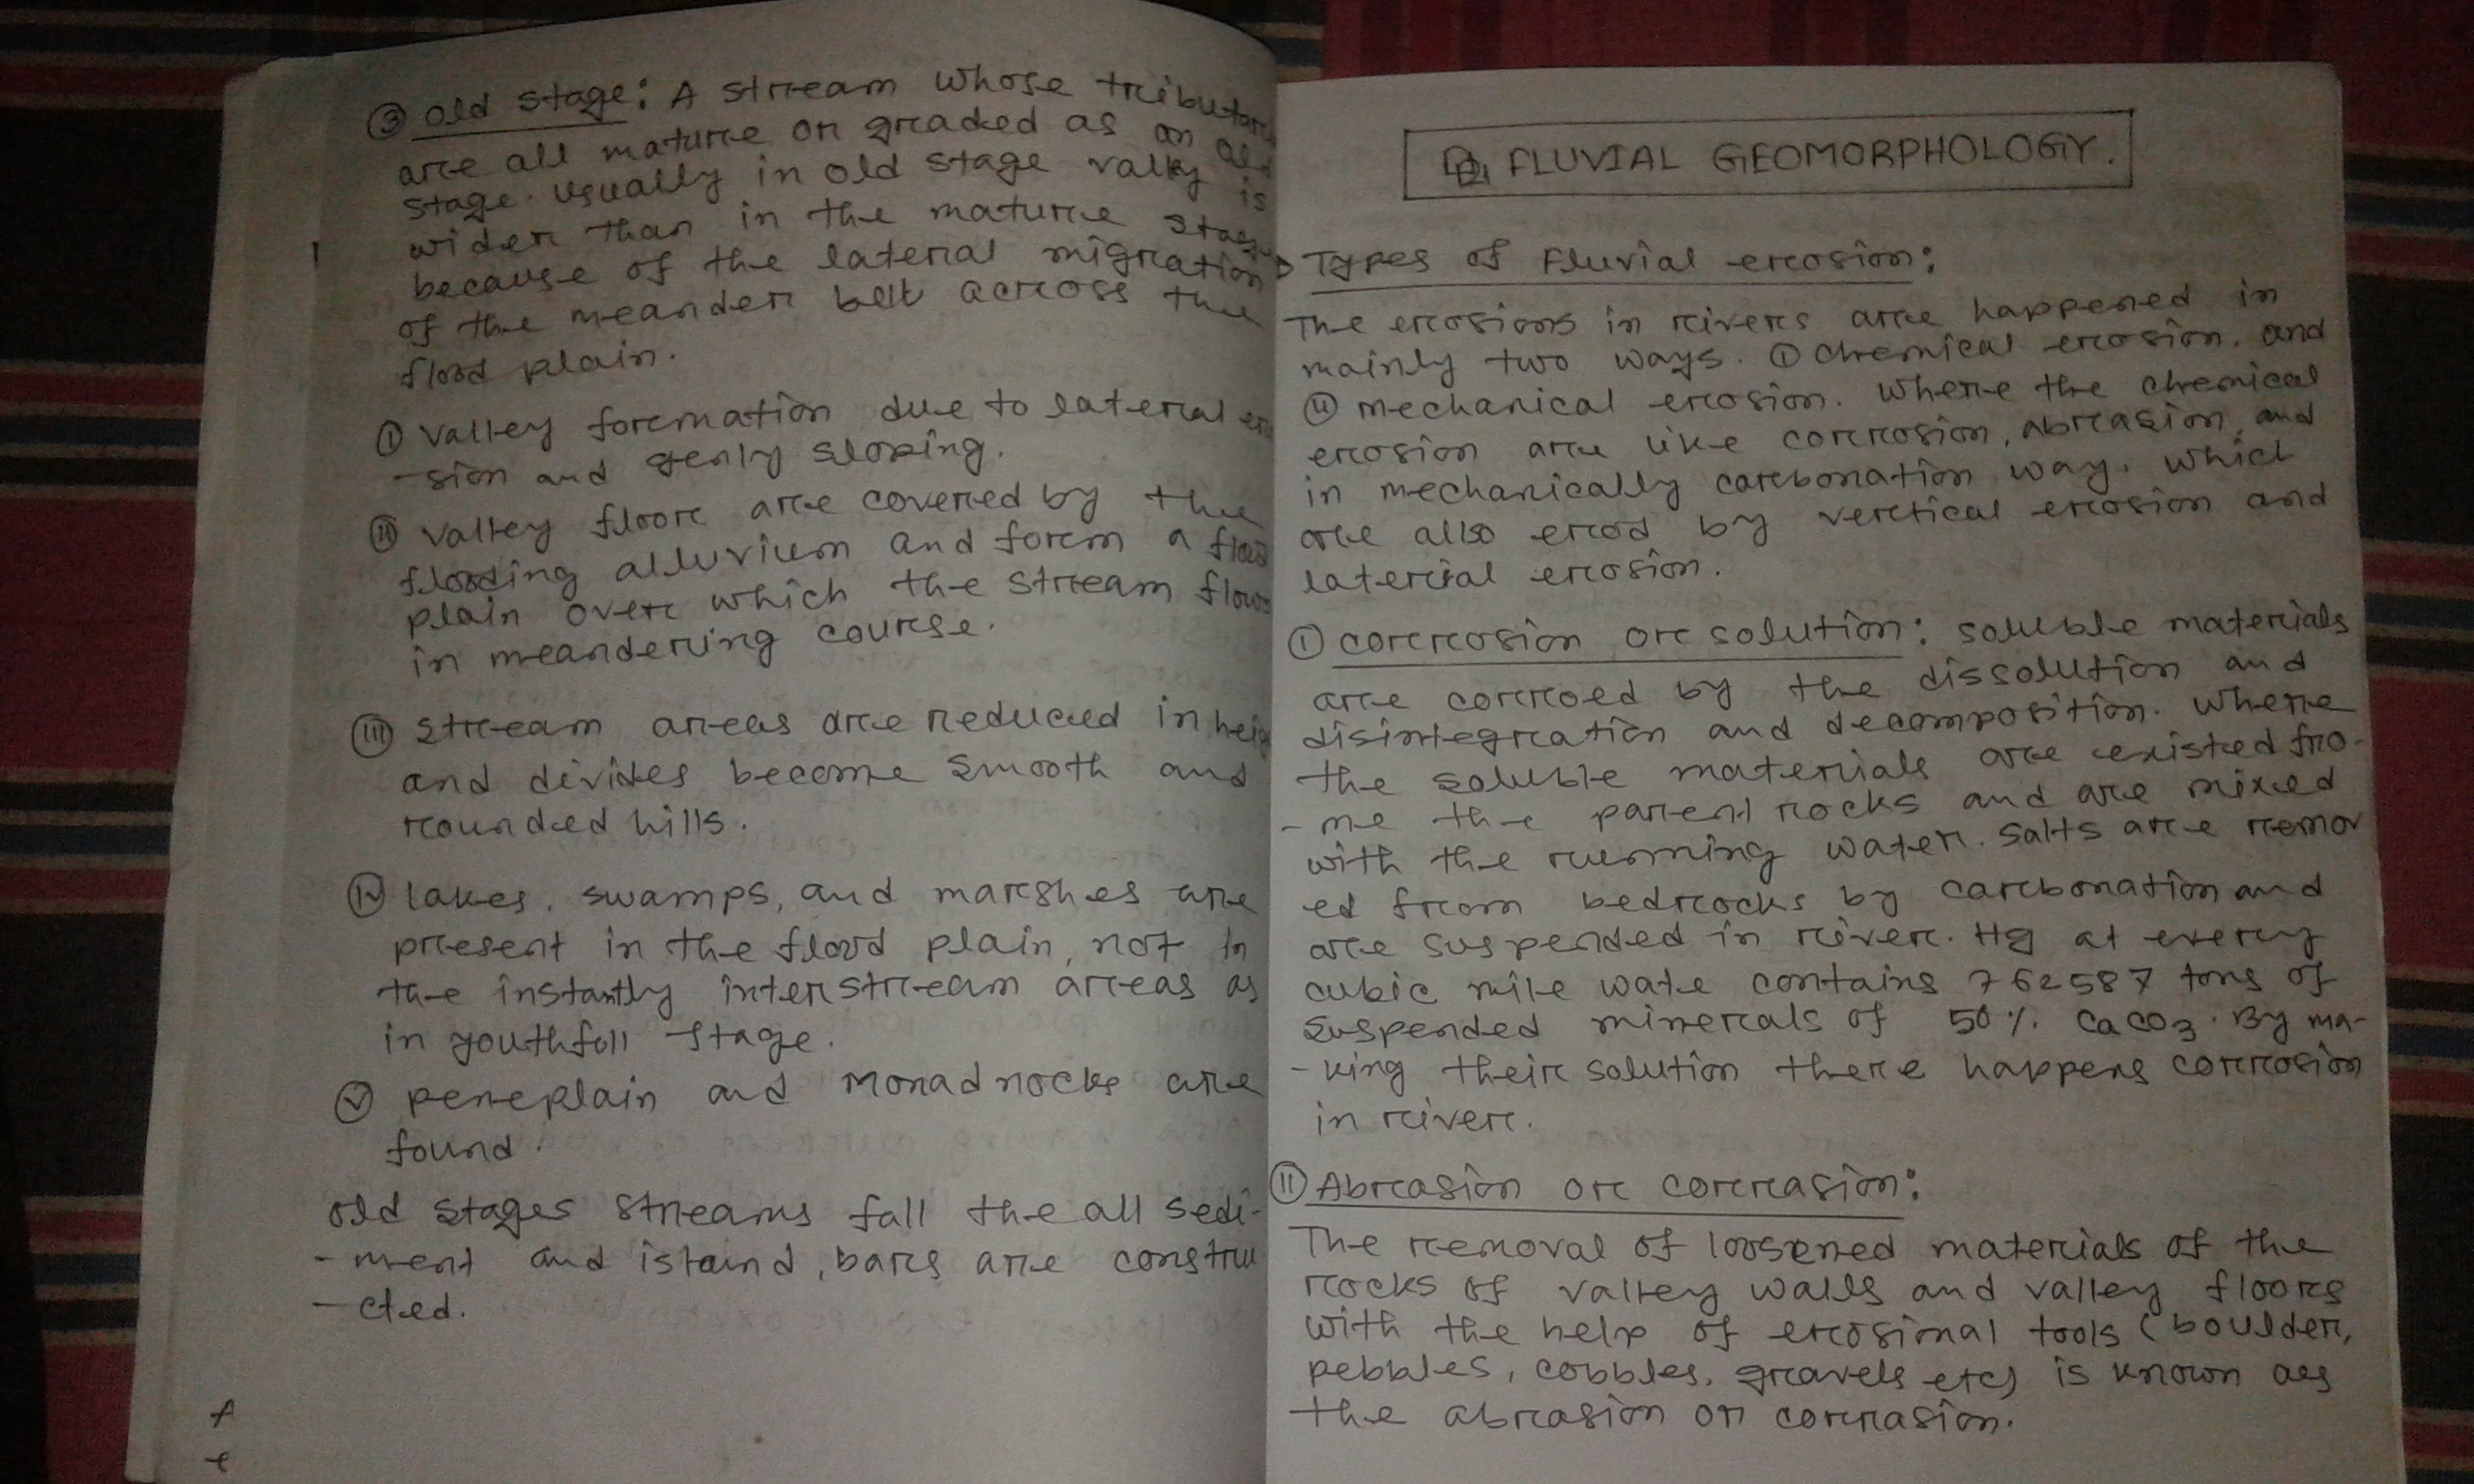 ③ Old stage: A stream whose tributar
are all mature or graded as an old
stage. Usually in old stage vally is
wider than in the mature stage
because of the laterial migration
of the meander belt across the
flood plain.
① Valley formation due to lateral ero
-sion and genly sloping.
⑪ Valley floor are covered by the
flooding alluvium and form a flood
plain over which the stream flows
in meandering course.
⑪⑪ Stream areas are reduced in heig
and divides become smooth and
rounded hills.
Ⓘⓥ lakes, swamps, and marshes are
present in the flood plain, not in
the instantly interstream areas as
in youthfull stage.
Ⓥ peneplain and monadnocks are
found.
Old stages streams fall the all sedi-
-ment and island, bars are constru
-cted.
FLUVIAL GEOMORPHOLOGY.
Types of Fluvial erosion:
The erosions in rivers are happened in
mainly two ways. ① Chemical erosion. and
⑪ mechanical erosion. Where the chemical
erosion are like corrosion, abrasion, and
in mechanically carbonation way. Which
are also erod by vertical erosion and
laterial erosion.
① Corrosion or solution: Soluble materials
are corroed by the dissolution and
disintegration and decomposition. Where
the soluble materials are existed fro-
-me the parent rocks and are mixed
with the running water. Salts are remov
ed from bedrocks by carbonation and
are suspended in river. Hg at every
cubic mile wate contains 762587 tons of
suspended minerals of 50%. CaCO3. By ma-
-king their solution there happens corrosion
in river.
⑪ Abrasion or corrasion:
The removal of loosened materials of the
rocks of valley walls and valley floors
with the help of erosimal tools (boulder,
pebbles, cobbles, gravels etc) is known aes
the abrasion or corrasion.